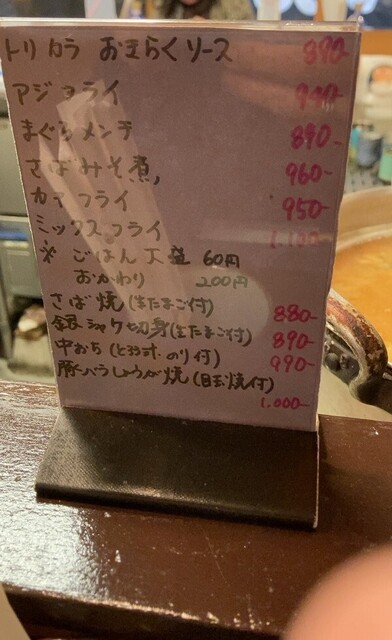 トリカラ おまらくソース 890-
アジフライ 940-
まぐろメンチ 890-
さばみそ煮, 960-
カキフライ 950-
ミックスフライ 1,100-
※ ごはん 大盛 60円
おかわり 200円
さば焼(生たまご付) 880-
銀シャケ切身(生たまご付) 890-
中おち(とろろor.のり付) 990-
豚バラしょうが焼(目玉焼付)
1.000-